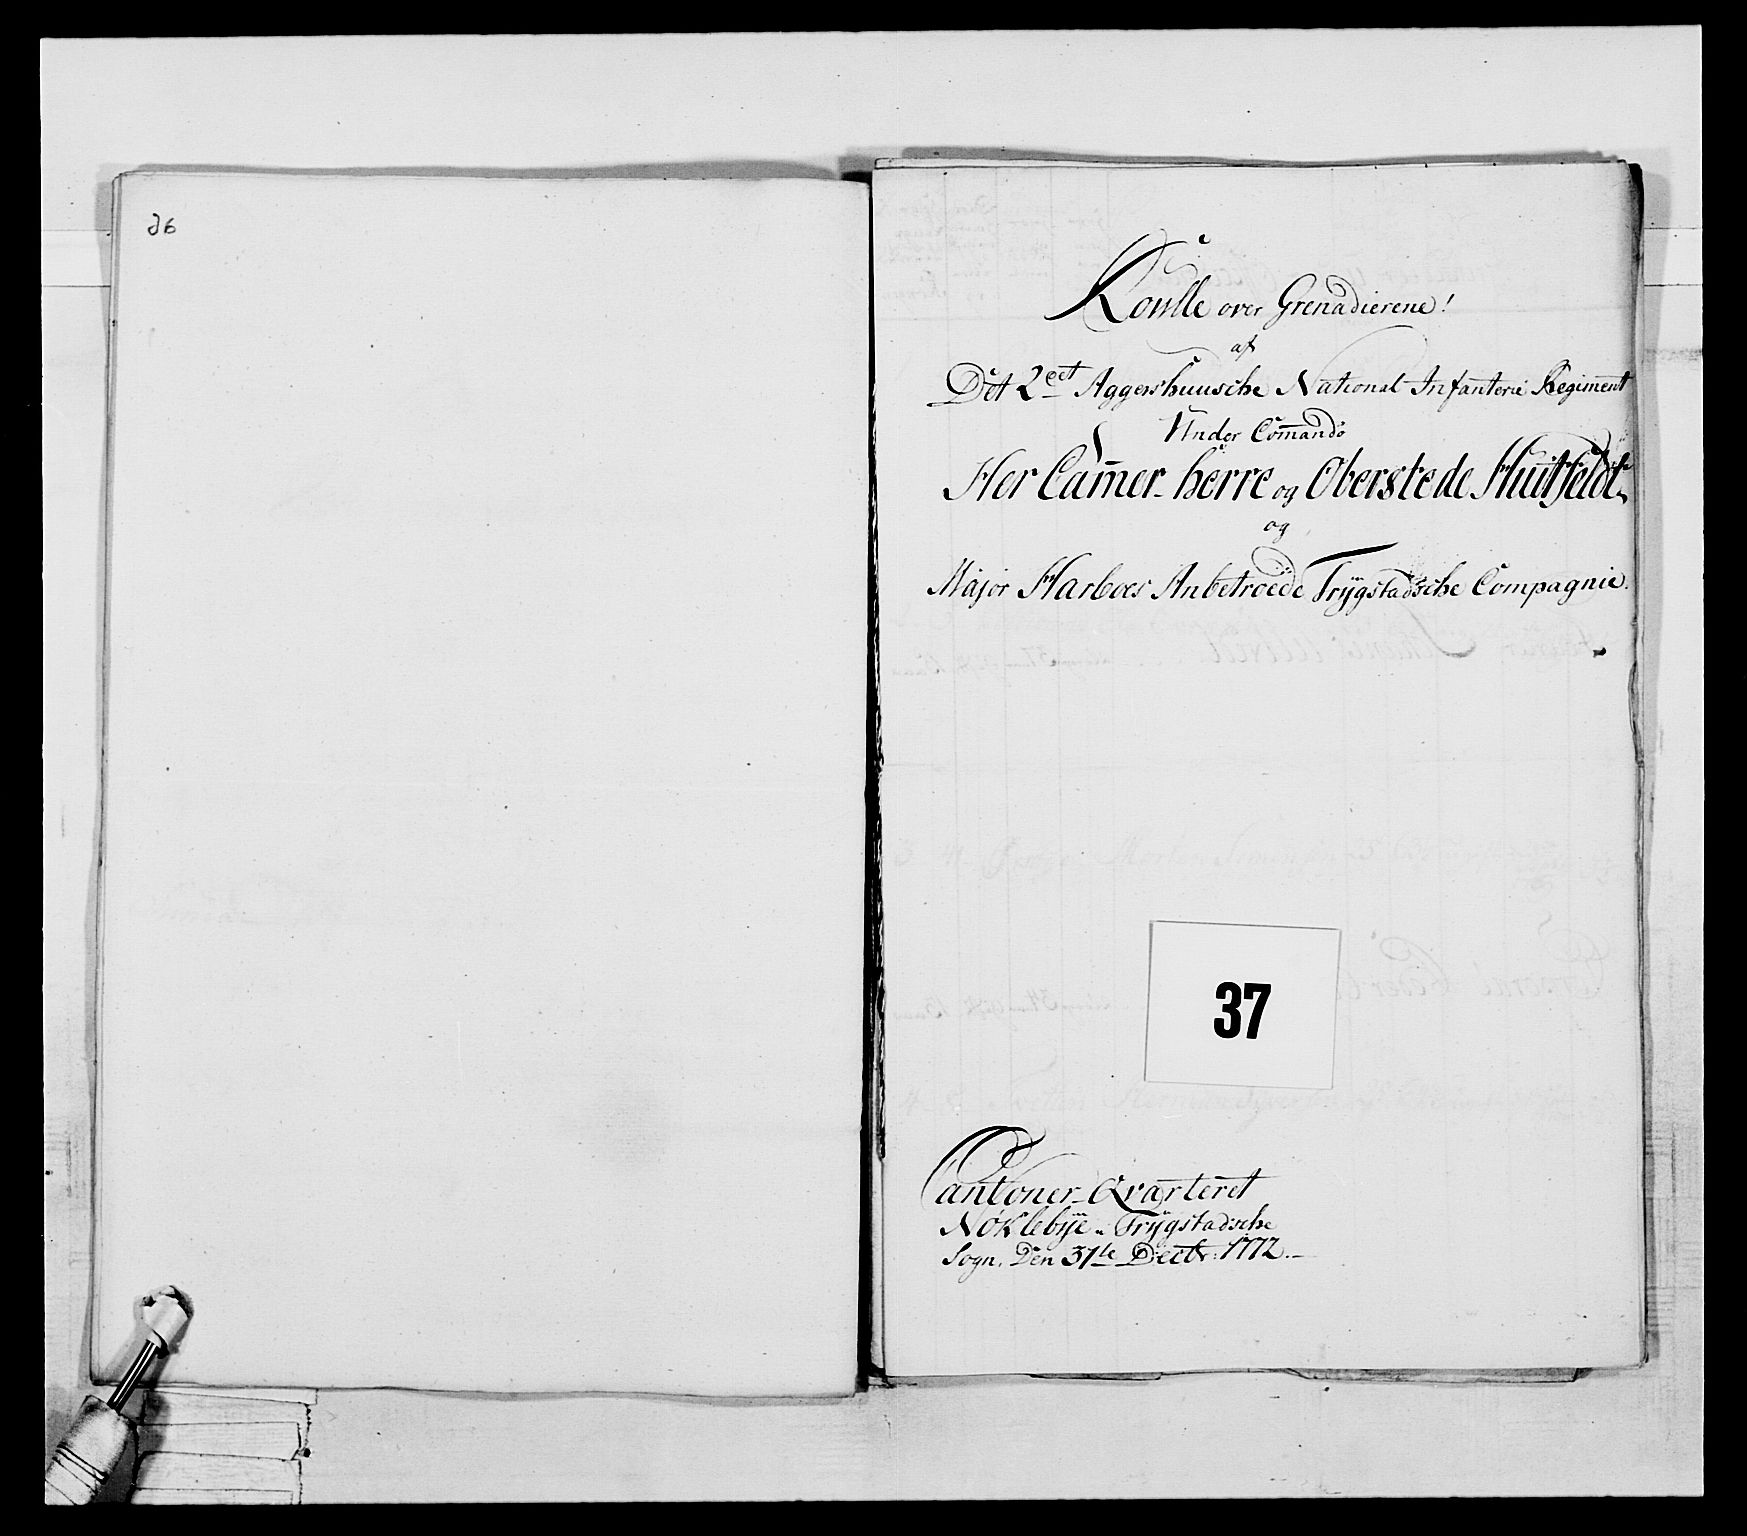 36
Roulle over Grenadierene!
af
Det 2det Aggershuusche National Infanterie Regiment
Under Comando
Her Camer-herre og Oberste de Huitfeldt
og
Major Harboes Anbetroede Trÿgstadsche Compagnie.
37
Cantoner-Qvarteret
Nøklebÿe i Trÿgstadsche
Sogn. Den 31te Decbr: 1772.